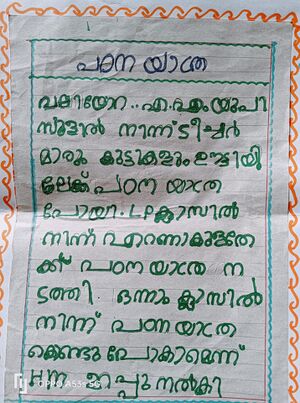 പഠന യാത്ര
വലിയോറ.. എ.എം.യു.പി
സ്കൂളിൽ നിന്ന് ടീച്ചർ
മാരും കുട്ടികളും ഊട്ടിയി
ലേക്ക് പഠന യാത്ര
പോയി. LP ക്ലാസിൽ
നിന്ന് എറണാകുളത്തേ
ക്ക് പഠന യാത്ര ന
ടത്തി ഒന്നാം ക്ലാസിൽ
നിന്ന് പഠന യാത്ര
കൊണ്ടു പോകാമെന്ന്
നൽകി
OPPO A53s 5G